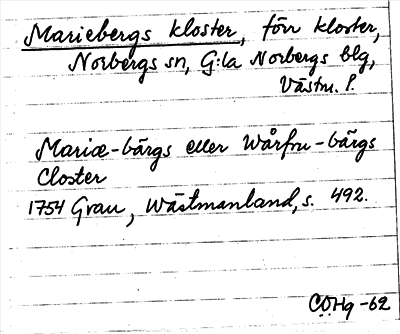 Mariebergs kloster, förr kloster,
Norbergs sn, G:la Norbergs blg,
Västm. l.
Mariæ-bärgs eller Wårfru-bärgs
Closter
1754 Grau, Wästmanland, s. 492.
C.O.Hg -62